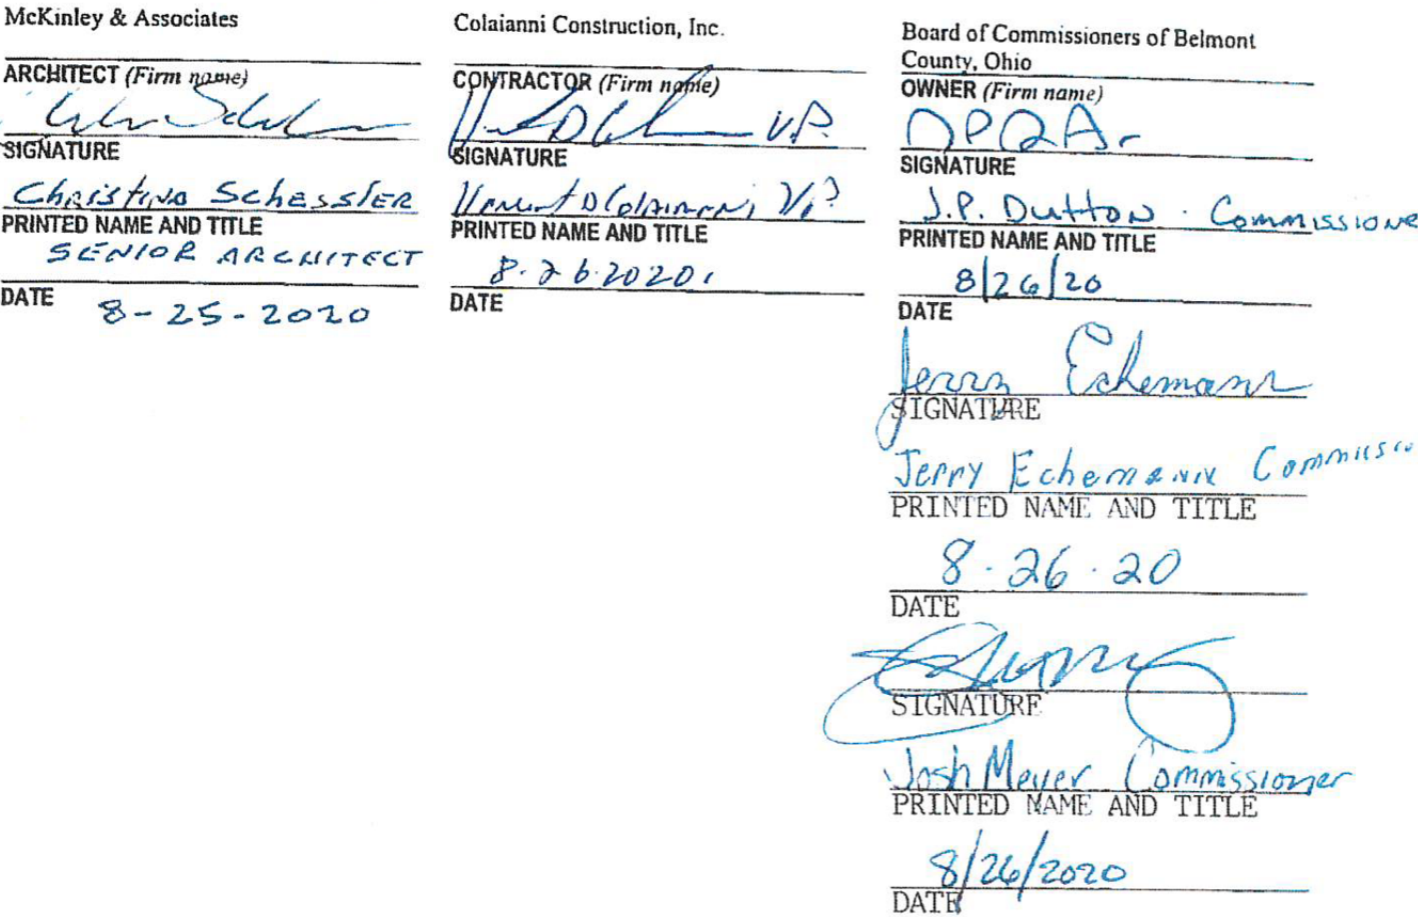 McKinley & Associates
ARCHITECT (Firm name)
SIGNATURE
Christina Schessler
PRINTED NAME AND TITLE
SENIOR ARCHITECT
DATE 8-25-2020
Colaianni Construction, Inc.
CONTRACTOR (Firm name)
V.P.
SIGNATURE
Vincent D Colaianni, V.P.
PRINTED NAME AND TITLE
8.26.2020
DATE
Board of Commissioners of Belmont
County, Ohio
OWNER (Firm name)
SIGNATURE
J.P. Dutton - Commissione
PRINTED NAME AND TITLE
8/26/20
DATE
Jerry Echemann
SIGNATURE
Jerry Echemann Commissio
PRINTED NAME AND TITLE
8-26-20
DATE
SIGNATURE
Josh Meyer Commissioner
PRINTED NAME AND TITLE
8/26/2020
DATE